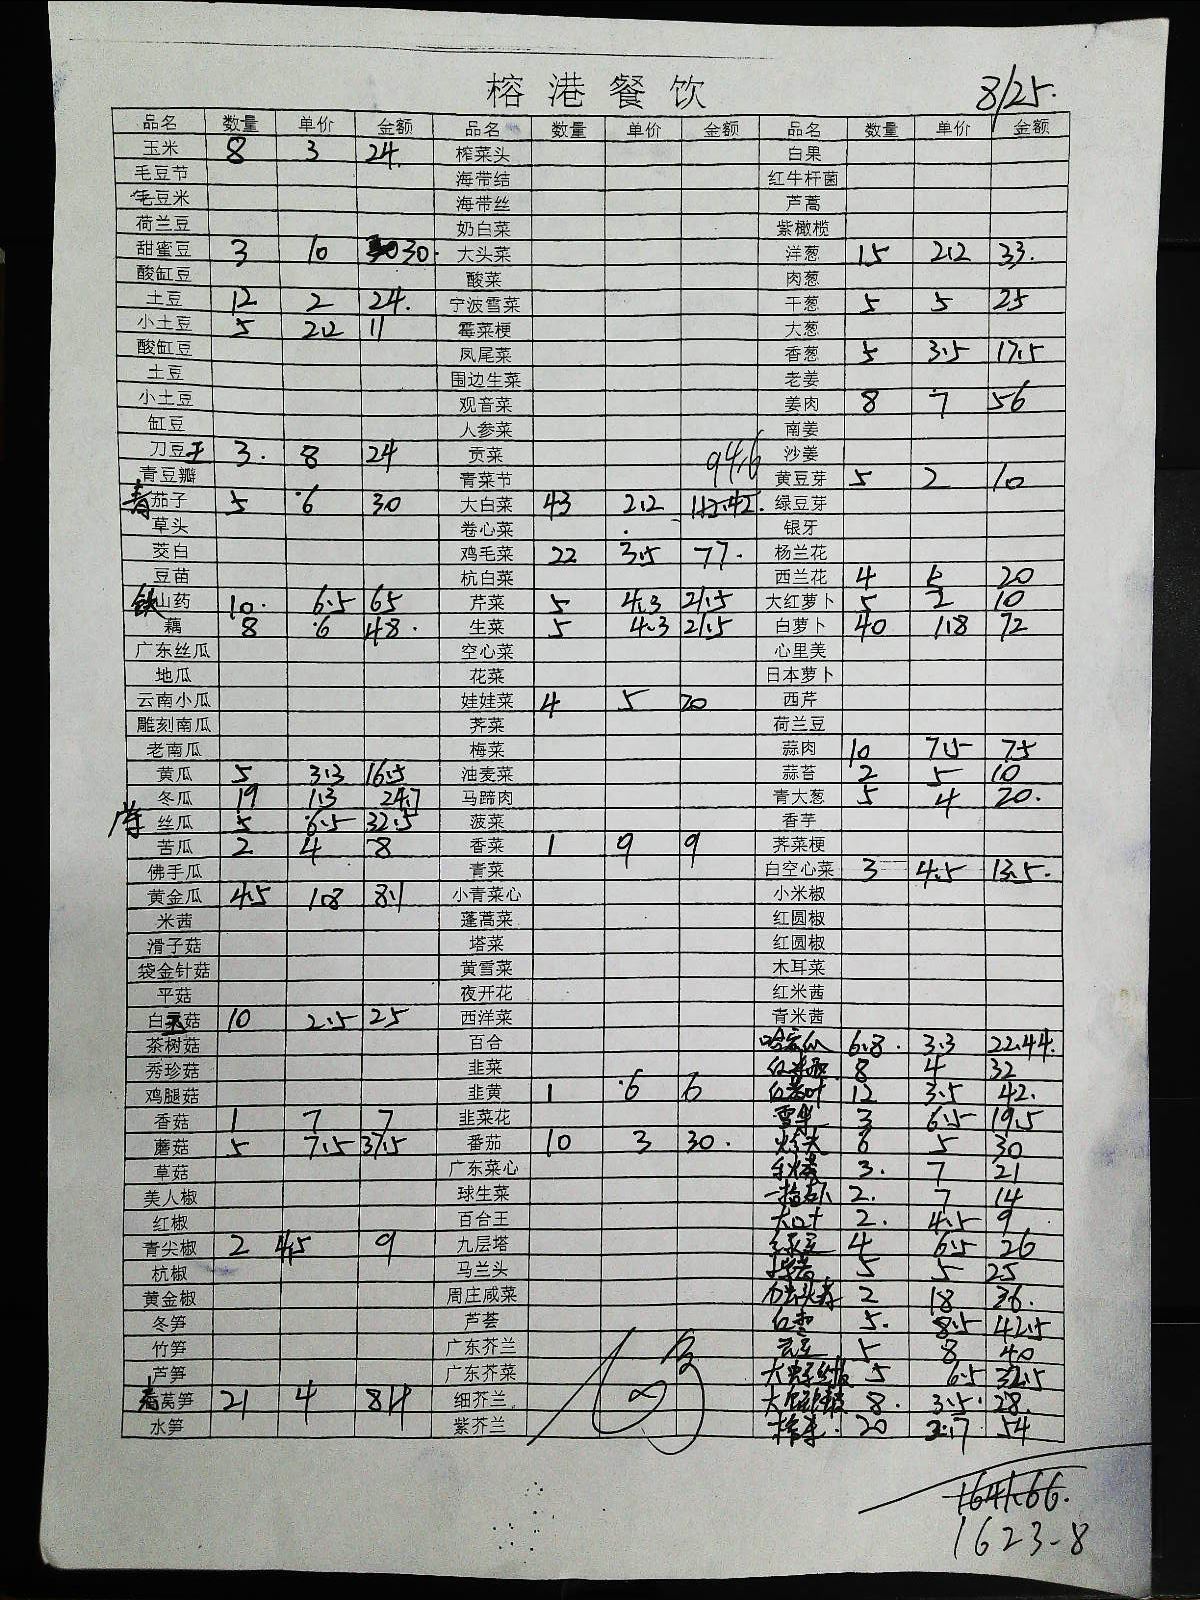 榕港餐饮 8/25.
品名 数量 单价 金额 品名 数量 单价 金额 品名 数量 单价 金额
玉米 8 3 24. 榨菜头 白果
毛豆节 海带结 红牛杆菌
毛豆米 海带丝 芦蒿
荷兰豆 奶白菜 紫橄榄
甜蜜豆 3 10 30. 大头菜 洋葱 15 2.2 33.
酸缸豆 酸菜 肉葱
土豆 12 2 24. 宁波雪菜 干葱 5 5 25
小土豆 5 2.2 11 霉菜梗 大葱
酸缸豆 凤尾菜 香葱 5 3.5 17.5
土豆 围边生菜 老姜
小土豆 观音菜 姜肉 8 7 56
缸豆 人参菜 南姜
刀豆王 3. 8 24 贡菜 94.6 沙姜
青豆瓣 青菜节 黄豆芽 5 2 10
青茄子 5 6 30 大白菜 43 2.2 112.42. 绿豆芽
草头 卷心菜 银牙
茭白 鸡毛菜 22 3.5 77. 杨兰花
豆苗 杭白菜 西兰花 4 5 20
铁山药 10. 6.5 65 芹菜 5 4.3 21.5 大红萝卜 5 2 10
藕 8 6 48. 生菜 5 4.3 21.5 白萝卜 40 1.8 72
广东丝瓜 空心菜 心里美
地瓜 花菜 日本萝卜
云南小瓜 娃娃菜 4 5 20 西芹
雕刻南瓜 荠菜 荷兰豆
老南瓜 梅菜 蒜肉 10 7.5 75
黄瓜 5 3.3 16.5 油麦菜 蒜苔 2 5 10
冬瓜 19 1.3 24.7 马蹄肉 青大葱 5 4 20.
丝瓜 5 6.5 32.5 菠菜 香芋
苦瓜 2 4 8 香菜 1 9 9 荠菜梗
佛手瓜 青菜 白空心菜 3 4.5 13.5.
黄金瓜 4.5 1.8 8.1 小青菜心 小米椒
米茜 蓬蒿菜 红圆椒
滑子菇 塔菜 红圆椒
袋金针菇 黄雪菜 木耳菜
平菇 夜开花 红米茜
白玉菇 10 2.5 25 西洋菜 青米茜
茶树菇 百合 哈密瓜 6.8. 3.3 22.44.
秀珍菇 韭菜 8 4 32
鸡腿菇 韭黄 1 6 6 12 3.5 42.
香菇 1 7 7 韭菜花 雪梨 3 6.5 19.5
蘑菇 5 7.5 37.5 番茄 10 3 30. 6 5 30
草菇 广东菜心 3. 7 21
美人椒 球生菜 2. 7 14
红椒 百合王 2. 4.5 9
青尖椒 2 4.5 9 九层塔 绿豆 4 6.5 26
杭椒 马兰头 5 5 25
黄金椒 周庄咸菜 2 18 36.
冬笋 芦荟 红枣 5. 8.5 42.5
竹笋 广东芥兰 5 8 40
芦笋 广东芥菜 5 6.5 32.5
青莴笋 21 4 84 细芥兰 8. 3.5. 28.
水笋 紫芥兰 20 2.7 54
1641.66.
1623-8